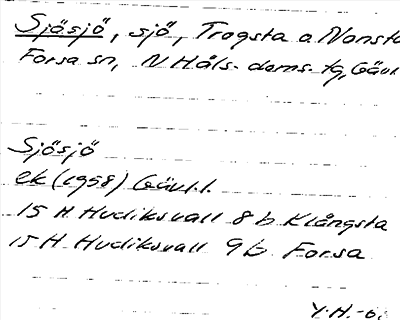 Sjösjö, sjö, Trogsta o Nansta
Forsa sn, N Häls. doms. tg, Gävl
Sjösjö
ek (1958) Gävl.l.
15 H Hudiksvall 8 b Klångsta
15 H Hudiksvall 9 b Forsa
Y.H.-o.